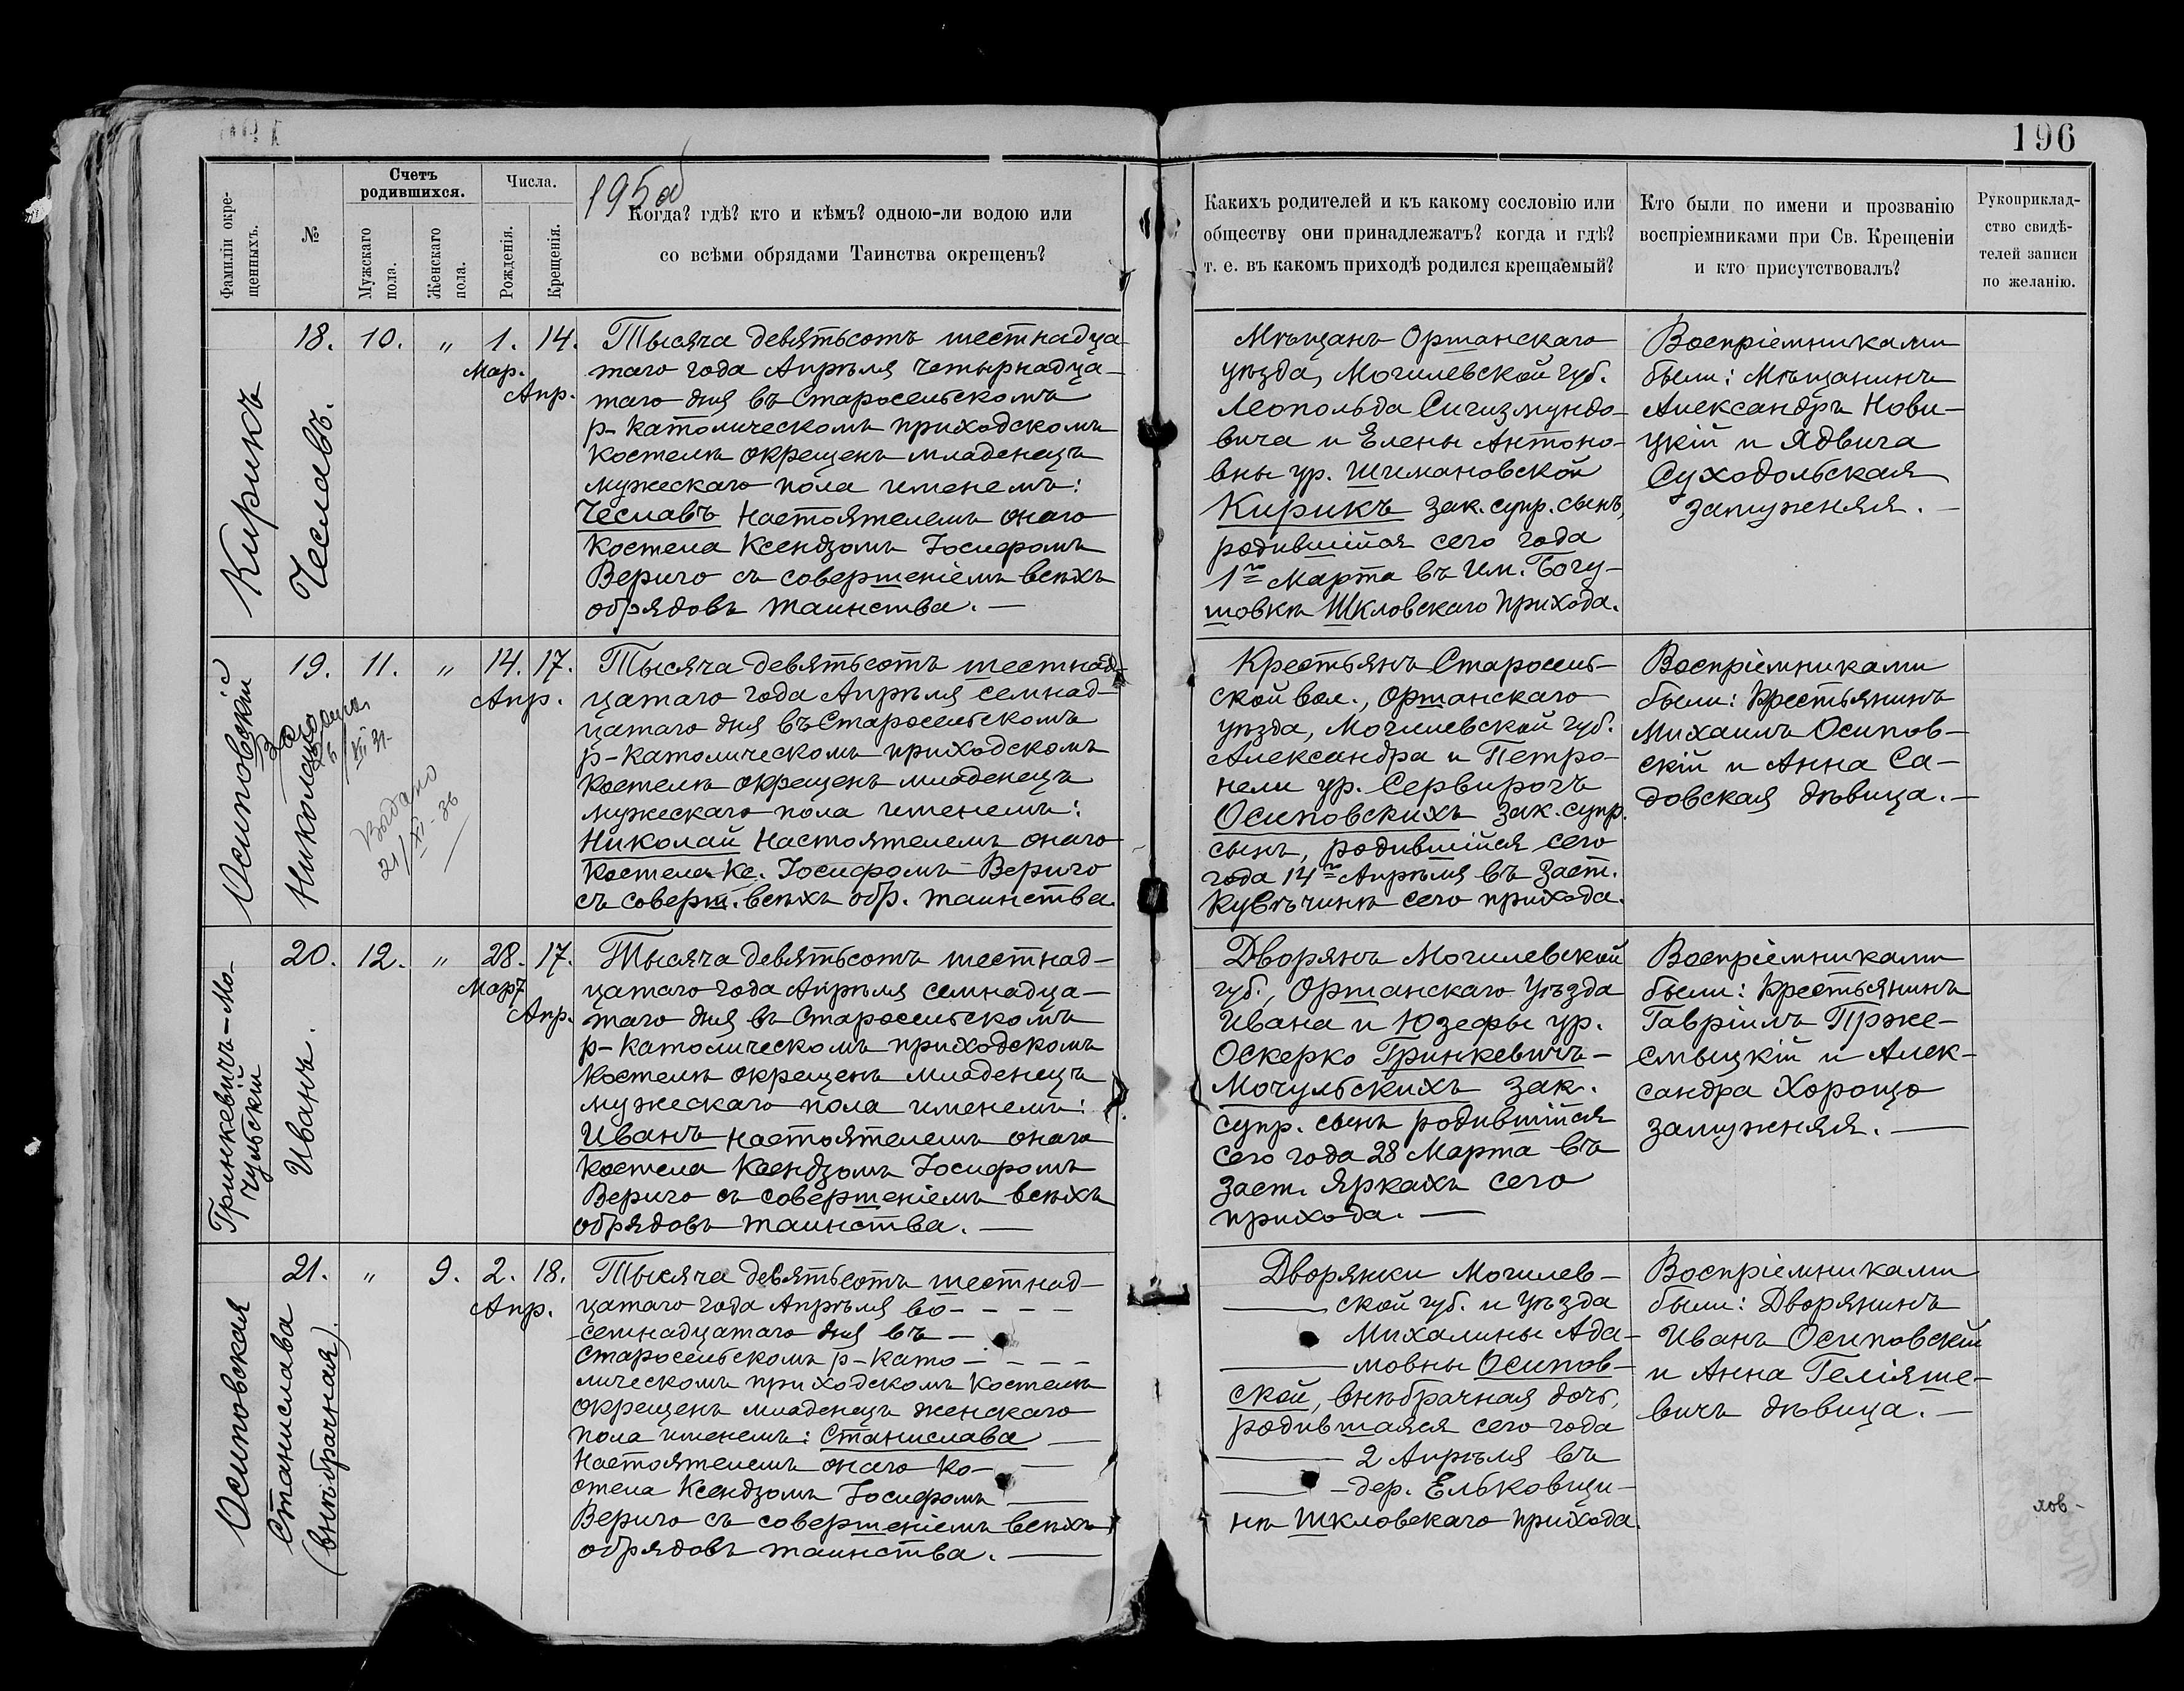 196
195об
Фамиліи окре-
щенныхъ.
№
Счетъ
родившихся.
Мужскаго
пола.
Женскаго
пола.
Числа.
Рожденія.
Крещенія.
Когда? гдѣ? кто и кѣмъ? одною-ли водою или
со всѣми обрядами Таинства окрещенъ?
Какихъ родителей и къ какому сословію или
обществу они принадлежатъ? когда и гдѣ?
т. е. въ какомъ приходѣ родился крещаемый?
Кто были по имени и прозванію
воспріемниками при Св. Крещеніи
и кто присутствовалъ?
Рукоприклад-
ство свидѣ-
телей записи
по желанію.
Кирикъ
Чеславъ.
18. 10. „ 1. 14.
Мар.
Апр.
Тысяча девятьсотъ шестнадца-
таго года Апрѣля четырнадца-
таго дня въ Старосельскомъ
р-католическомъ приходскомъ
костелѣ окрещенъ младенецъ
мужескаго пола именемъ:
Чеславъ Настоятелемъ онаго
костела Ксендзомъ Іосифомъ
Вериго съ совершеніемъ всѣхъ
обрядовъ таинства. —
Мѣщанъ Оршанскаго
уѣзда, Могилевской губ.
Леопольда Сигизмундо-
вича и Елены Антоно-
вны ур. Шимановской
Кирикъ зак. супр. сынъ,
родившійся сего года
1го Марта въ им. Богу-
шовкѣ Шкловскаго прихода.
Воспріемниками
были: Мѣщанинъ
Александръ Нови-
цкій и Ядвига
Суходольская
замужняя. —
Осиповскій
Николай
19. 11. „ 14. 17.
Апр.
Выдано
21/XI-36
Тысяча девятьсотъ шестнад-
цатаго года Апрѣля семнад-
цатаго дня въ Старосельскомъ
р-католическомъ приходскомъ
костелѣ окрещенъ младенецъ
мужескаго пола именемъ:
Николай Настоятелемъ онаго
костела Кс. Іосифомъ Вериго
съ соверш. всѣхъ обр. таинства.
Крестьянъ Старосель-
ской вол., Оршанскаго
уѣзда, Могилевской губ.
Александра и Петро-
нели ур. Сервирогъ
Осиповскихъ зак. супр.
сынъ, родившійся сего
года 14го Апрѣля въ заст.
Кувѣчинѣ сего прихода.
Воспріемниками
были: Крестьянинъ
Михаилъ Осипов-
скій и Анна Са-
довская дѣвица. —
Гринкевичъ-Мо-
чульскій
Иванъ.
20. 12. „ 28. 17.
Март
Апр.
Тысяча девятьсотъ шестнад-
цатаго года Апрѣля семнадца-
таго дня въ Старосельскомъ
р-католическомъ приходскомъ
костелѣ окрещенъ младенецъ
мужескаго пола именемъ:
Иванъ Настоятелемъ онаго
костела Ксендзомъ Іосифомъ
Вериго съ совершеніемъ всѣхъ
обрядовъ таинства. —
Дворянъ Могилевской
губ., Оршанскаго уѣзда
Ивана и Юзефы ур.
Оскерко Гринкевичъ-
Мочульскихъ зак.
супр. сынъ родившійся
сего года 28 Марта въ
заст. Яркахъ сего
прихода. —
Воспріемниками
были: Крестьянинъ
Гавріилъ Прже-
смыцкій и Алек-
сандра Хорощо
замужняя. —
Осиповская
Станислава
(внѣбрачная).
21. „ 9. 2. 18.
Апр.
Тысяча девятьсотъ шестнад-
цатаго года Апрѣля во- - - -
семнадцатаго дня въ —
Старосельскомъ р-като- - - -
лическомъ приходскомъ костелѣ
окрещенъ младенецъ женскаго
пола именемъ: Станислава —
Настоятелемъ онаго ко- —
стела Ксендзомъ Іосифомъ —
Вериго съ совершеніемъ всѣхъ
обрядовъ таинства. —
Дворянки Могилев-
— ской губ. и уѣзда
Михалины Ада-
— мовны Осипов-
ской, внѣбрачная дочь,
родившаяся сего года
— 2 Апрѣля въ
— дер. Ельковщи-
нѣ Шкловскаго прихода.
Воспріемниками
были: Дворянинъ
Иванъ Осиповскій
и Анна Геліяше-
вичъ дѣвица. —
лов-